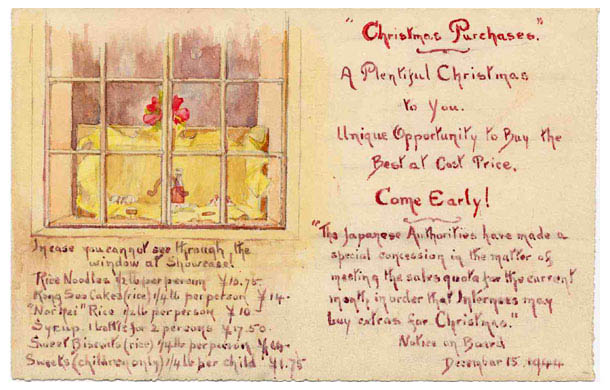 In case you cannot see through the
window at Showcase!
Rice Noodles 1/2 lb per person ¥10.75
Kong Soo Cakes (rice) 1/4 lb per person ¥14-
"Nor Mei" Rice 1/2 lb per person ¥10
Syrup 1 bottle for 2 persons ¥17.50
Sweet Biscuits (rice) 1/4 lb per person
Sweets (children only) 1/4 lb per child ¥1.75
"Christmas Purchases."
A Plentiful Christmas
to You.
Unique Opportunity to Buy the
Best at Cost Price.
Come Early!
"The Japanese Authorities have made a
special concession in the matter of
meeting the sales quota for the current
month, in order that Internees may
buy extras for Christmas."
Notice on Board
December 15. 1944